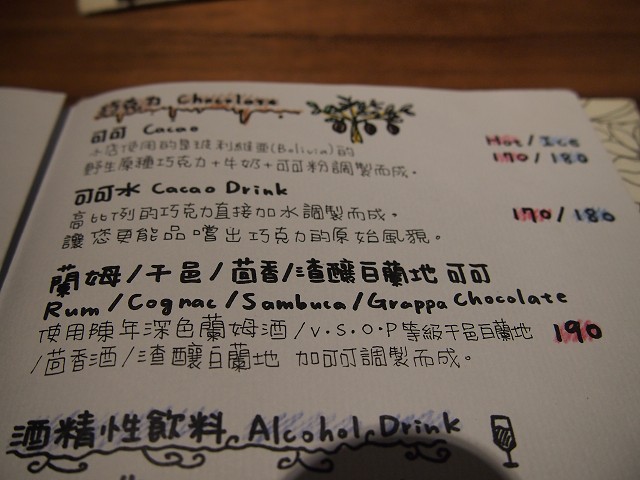 巧克力 Chocolate
可可 Cacao
Hot / Ice
本店使用的是玻利維亞(Bolivia)的
170 / 180
野生原種巧克力+牛奶+可可粉調製而成。
可可水 Cacao Drink
高比例的巧克力直接加水調製而成。
170 / 180
讓您更能品嚐出巧克力的原始風貌。
蘭姆/干邑/茴香/渣釀白蘭地 可可
Rum / Cognac / Sambuca / Grappa Chocolate
使用陳年深色蘭姆酒/V.S.O.P等級干邑白蘭地
190
/茴香酒/渣釀白蘭地 加可可調製而成。
酒精性飲料 Alcohol Drink